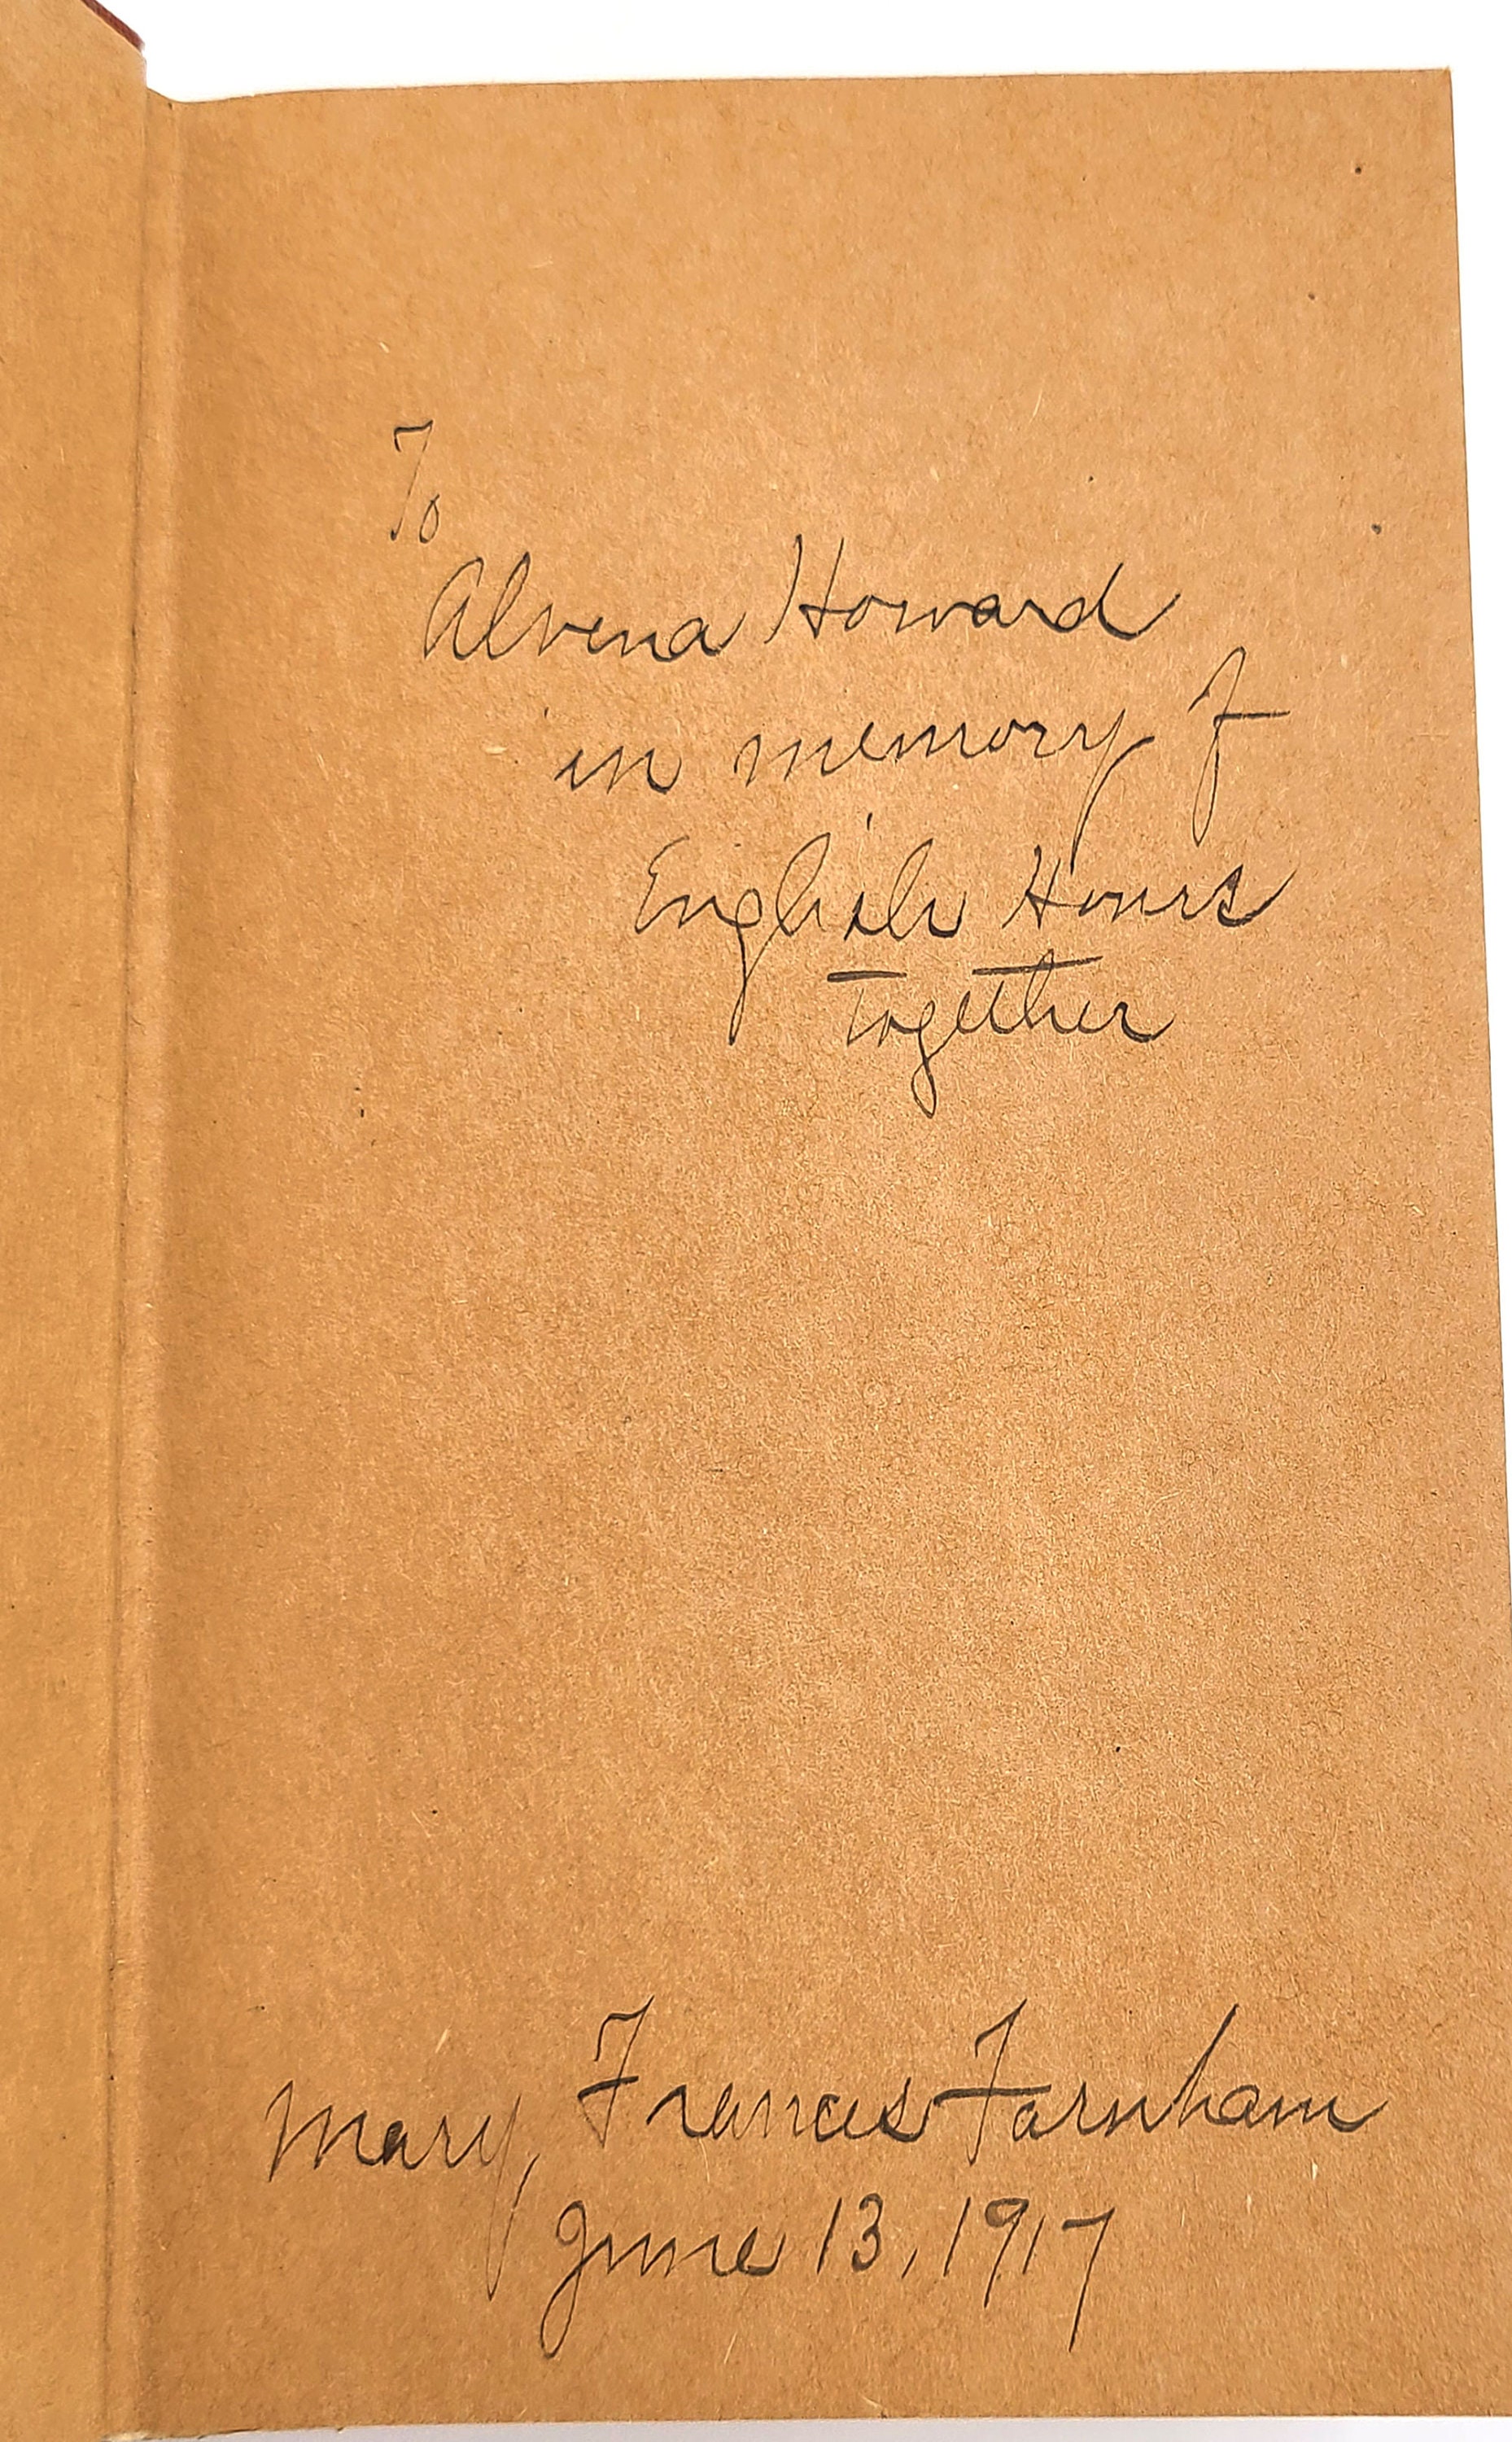 To
Alvena Howard
in memory of
English Hours
together
Mary Frances Farnham
June 13, 1917